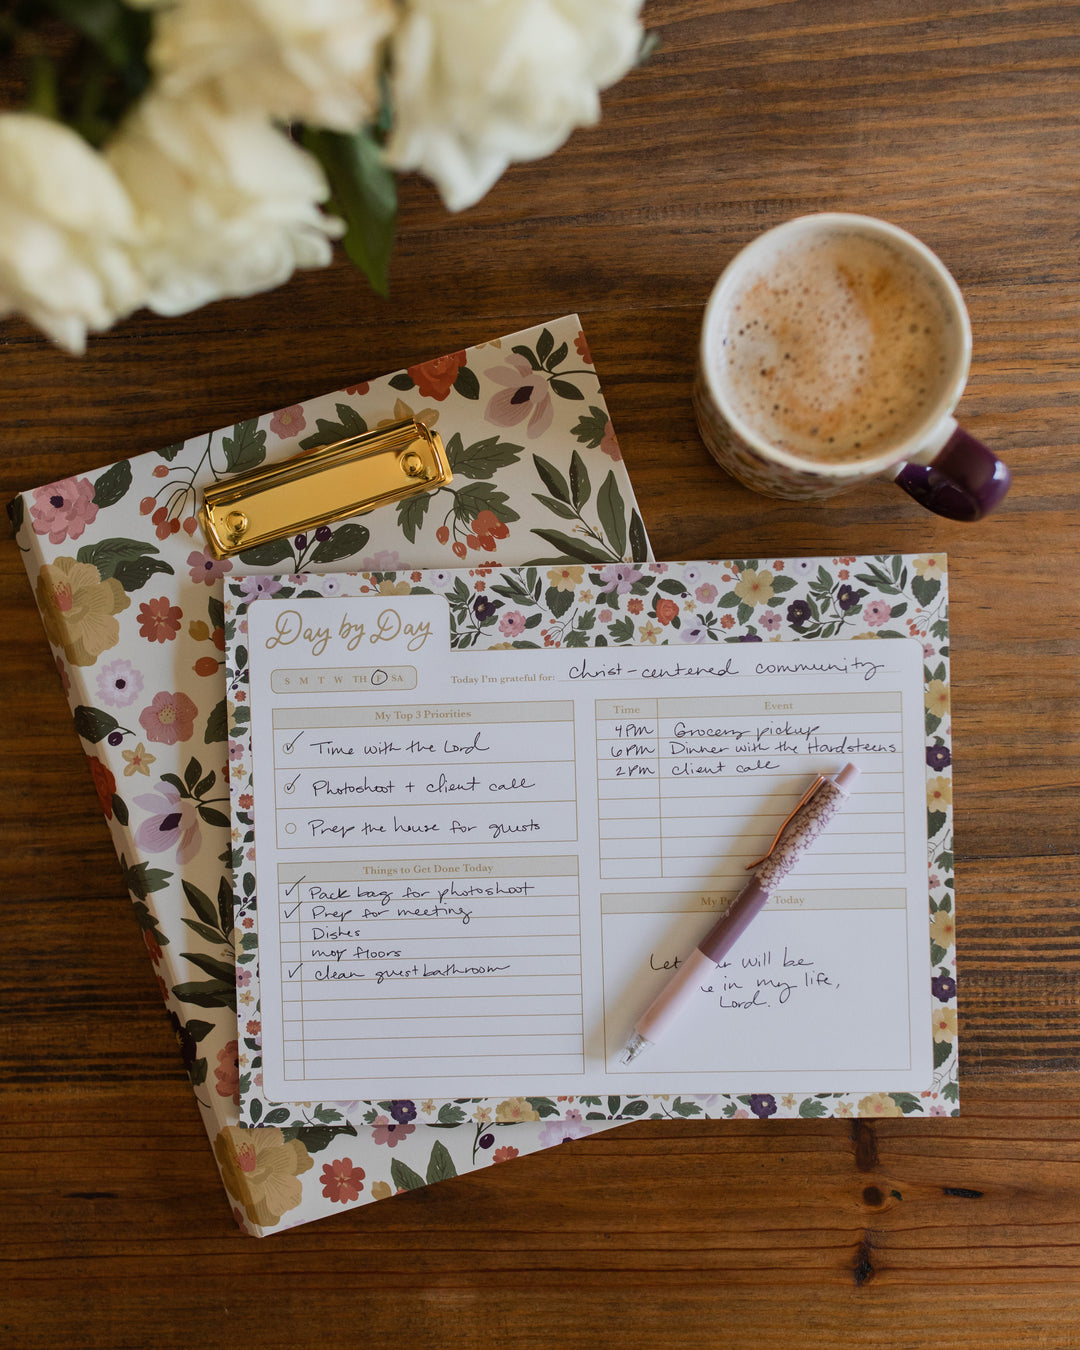 Day by Day
S M T W TH F SA
Today I'm grateful for: Christ-centered community
My Top 3 Priorities
Time with the Lord
Photoshoot + client call
Prep the house for guests
Things to Get Done Today
Pack bag for photoshoot
Prep for meeting
Dishes
mop floors
clean guest bathroom
Time Event
4PM Grocery pickup
6PM Dinner with the Hardsteens
2PM client call
My Today
will be
in my life,
Lord.